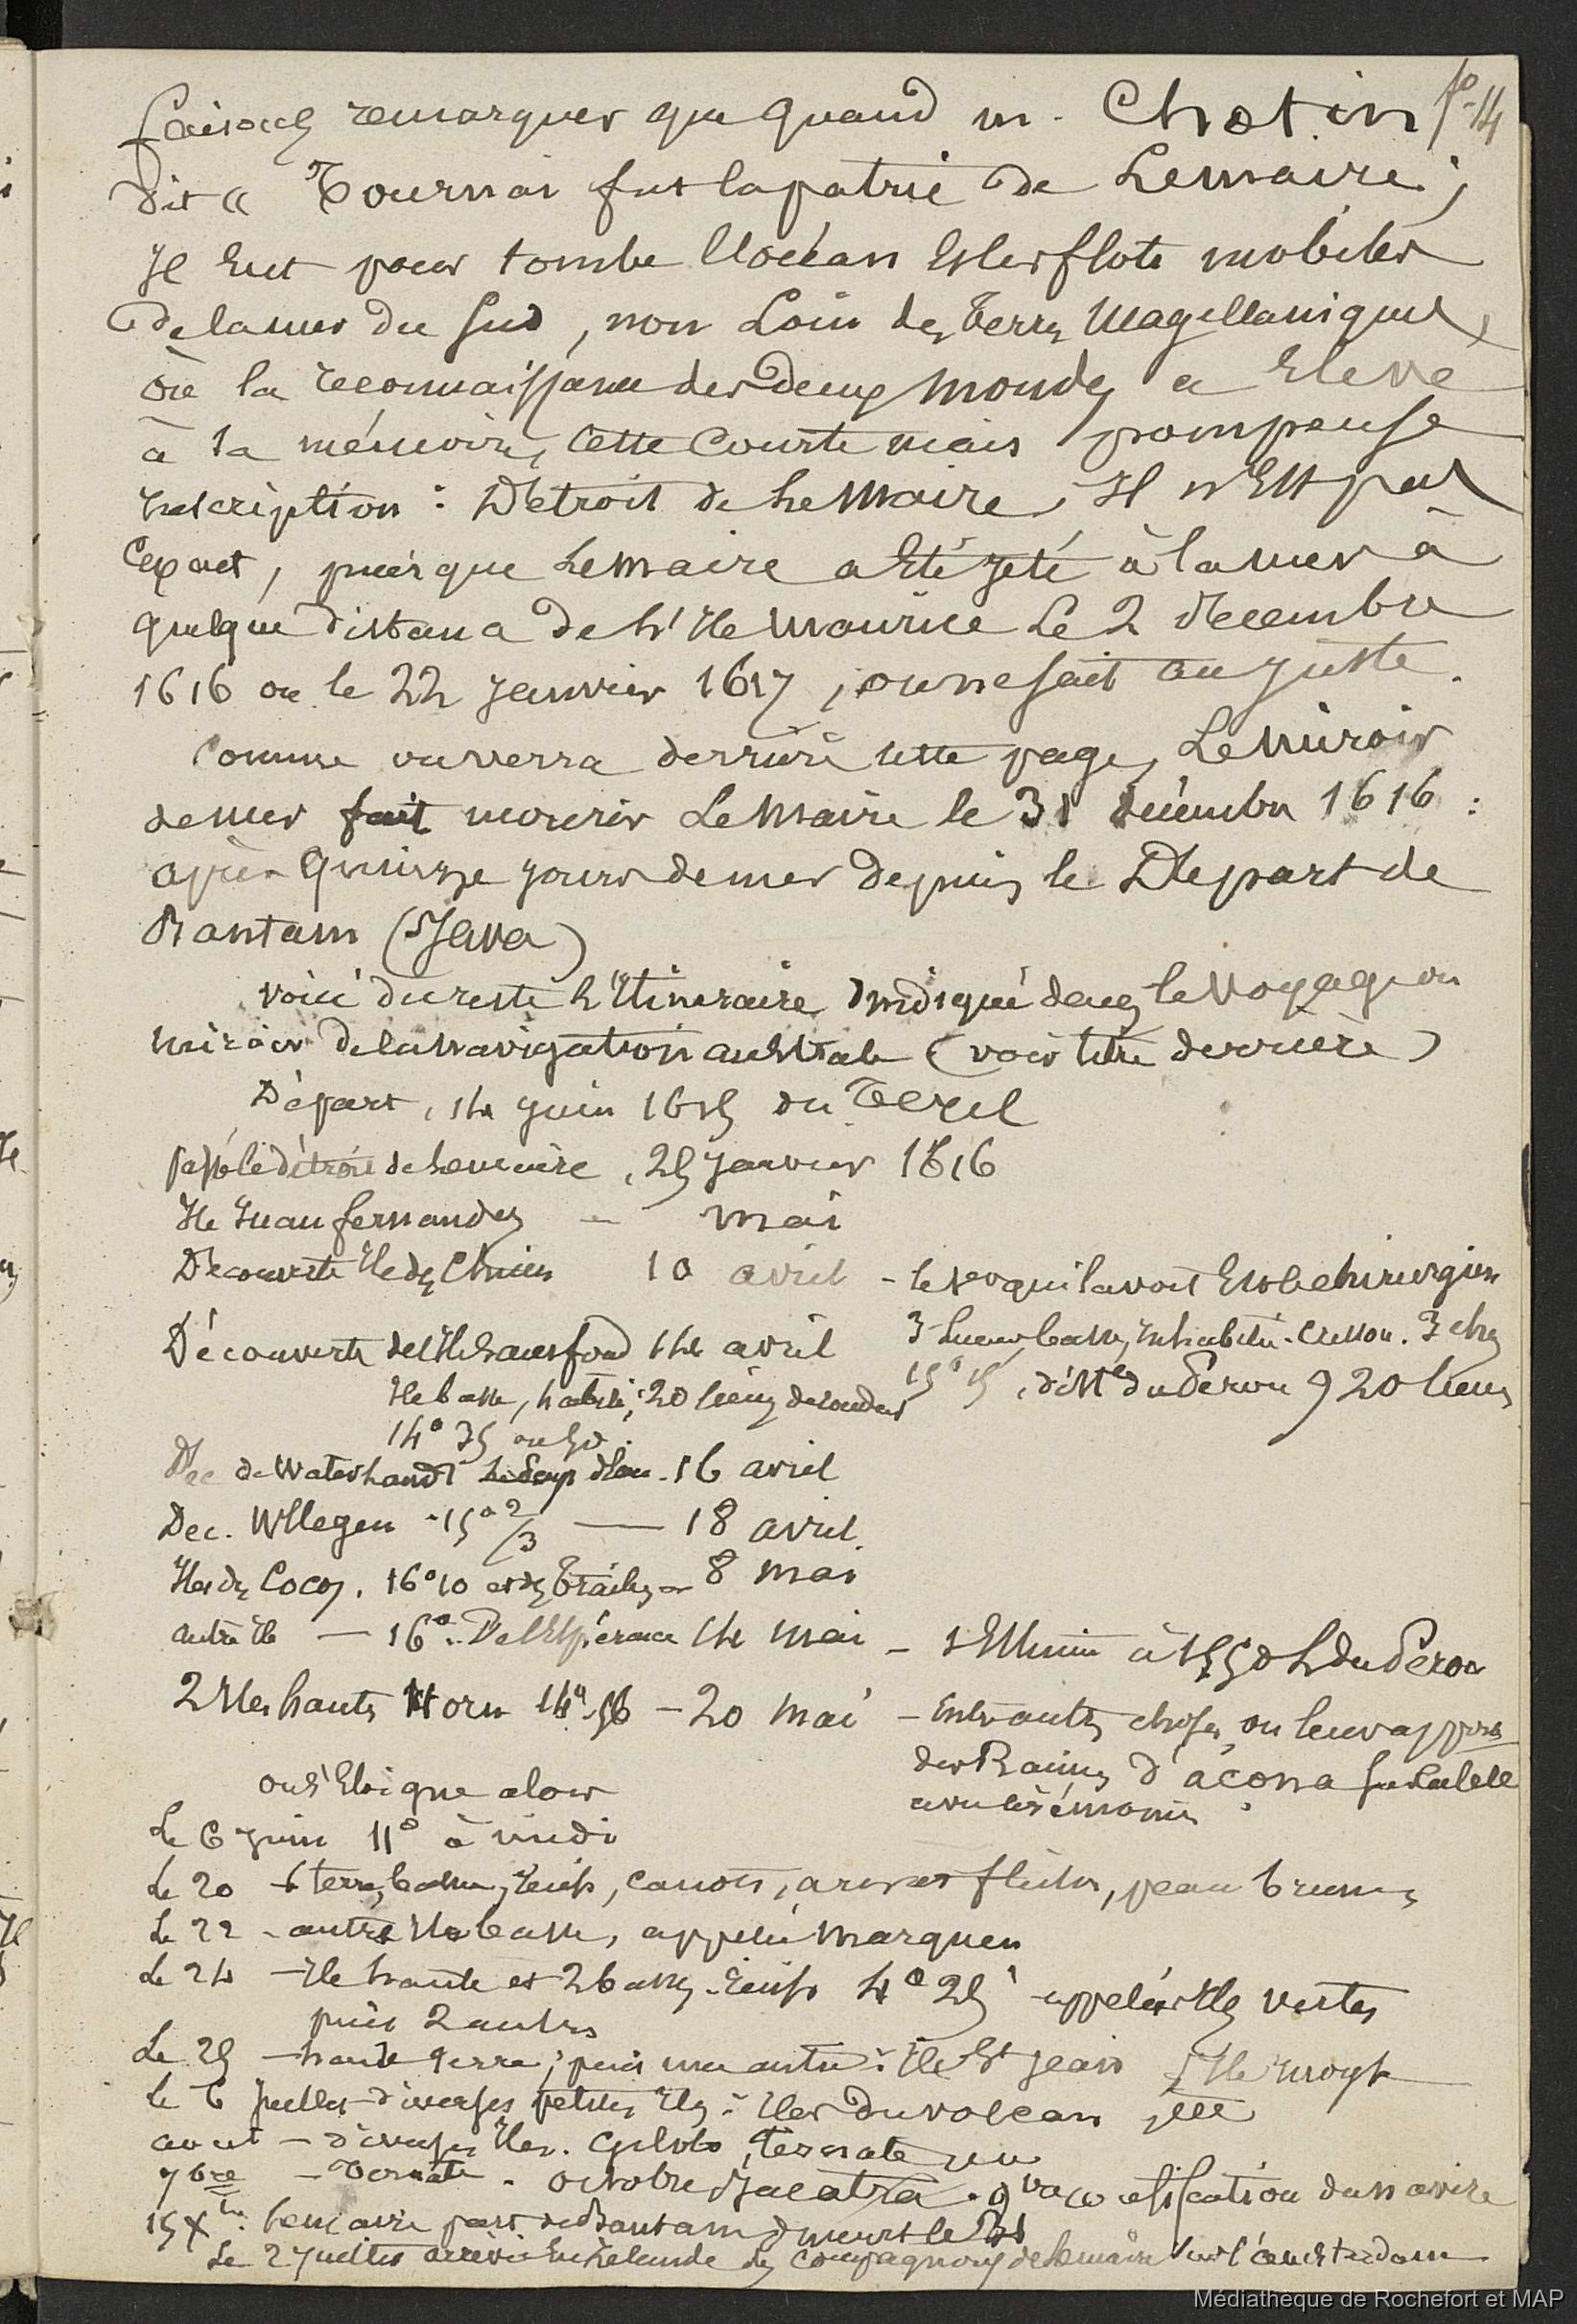 faisons remarquer que quand m. Chotin fo-14
dit « Tournai fut la patrie de Lemaire ;
Il eut pour tombe l'océan et les flots mobiles
de la mer du sud, non loin des terres Magellaniques,
où la reconnaissance des deux mondes a élevé
à sa mémoire, cette courte mais pompeuse
inscription : Détroit de Le Maire, Il n'est pas
exact, puisque Lemaire a été jeté à la mer à
quelque distance de L'Ile Maurice le 2 décembre
1616 ou le 22 janvier 1617, on ne sait au juste.
Comme on verra derrière cette page, Le miroir
de mer fait mourir Le Maire le 31 décembre 1616 :
après quinze jours de mer depuis le Départ de
Bantam (Java)
voici du reste L'Itinéraire Indiqué dans le Voyage ou
miroir de la navigation australe (voir titre derrière)
Départ, 14 juin 1615 du Texel
passé le détroit de Lemaire, 25 janvier 1616
Ile Juan fernandez — mai
Découverte Ile des Chiens 10 avril - le qui l'avoit
Découverte de l'Ile Sans fond 14 avril
Ile basse, habitée, 20 lieues de rondeur
14° 35 au Sd.
15° 15, dist du Pérou 920 lieues
Dec de Waterlandt 16 avril
Dec. Vlegen - 15° 2/3 — 18 avril
Iles des Cocos, 16°10 et des Traitres — 8 mai
autre Ile — 16°. De l'Espérance 14 mai - à L du Pérou
2 Iles hautes Horn 14° 56 - 20 mai - Entre autres choses, on leur apporte
des Racines d'acona
avec cérémonie
on s'éloigne alors
Le 6 juin 11° à midi
Le 20 - terre basse, récifs, canots, arcs et flèches, peau brune
Le 22 - autre Ile basse, appelée Marquen
Le 24 - Ile haute et 2 basses. Récifs 4° 25' appelées Iles vertes
puis 2 autres
Le 25 - haute terre ; puis une autre : Ile St Jean
Le 6 juillet - diverses petites Iles : Iles du volcan
aout - diverses Iles. Gilolo, Ternate
7bre - Ternate. octobre Jacatra. 9bre confiscation du navire
15 Xbre : Lemaire part de Bantam & meurt le 31
Le 2 juillet arrivée en Zélande des compagnons de Lemaire sur l'amsterdam
Médiathèque de Rochefort et MAP